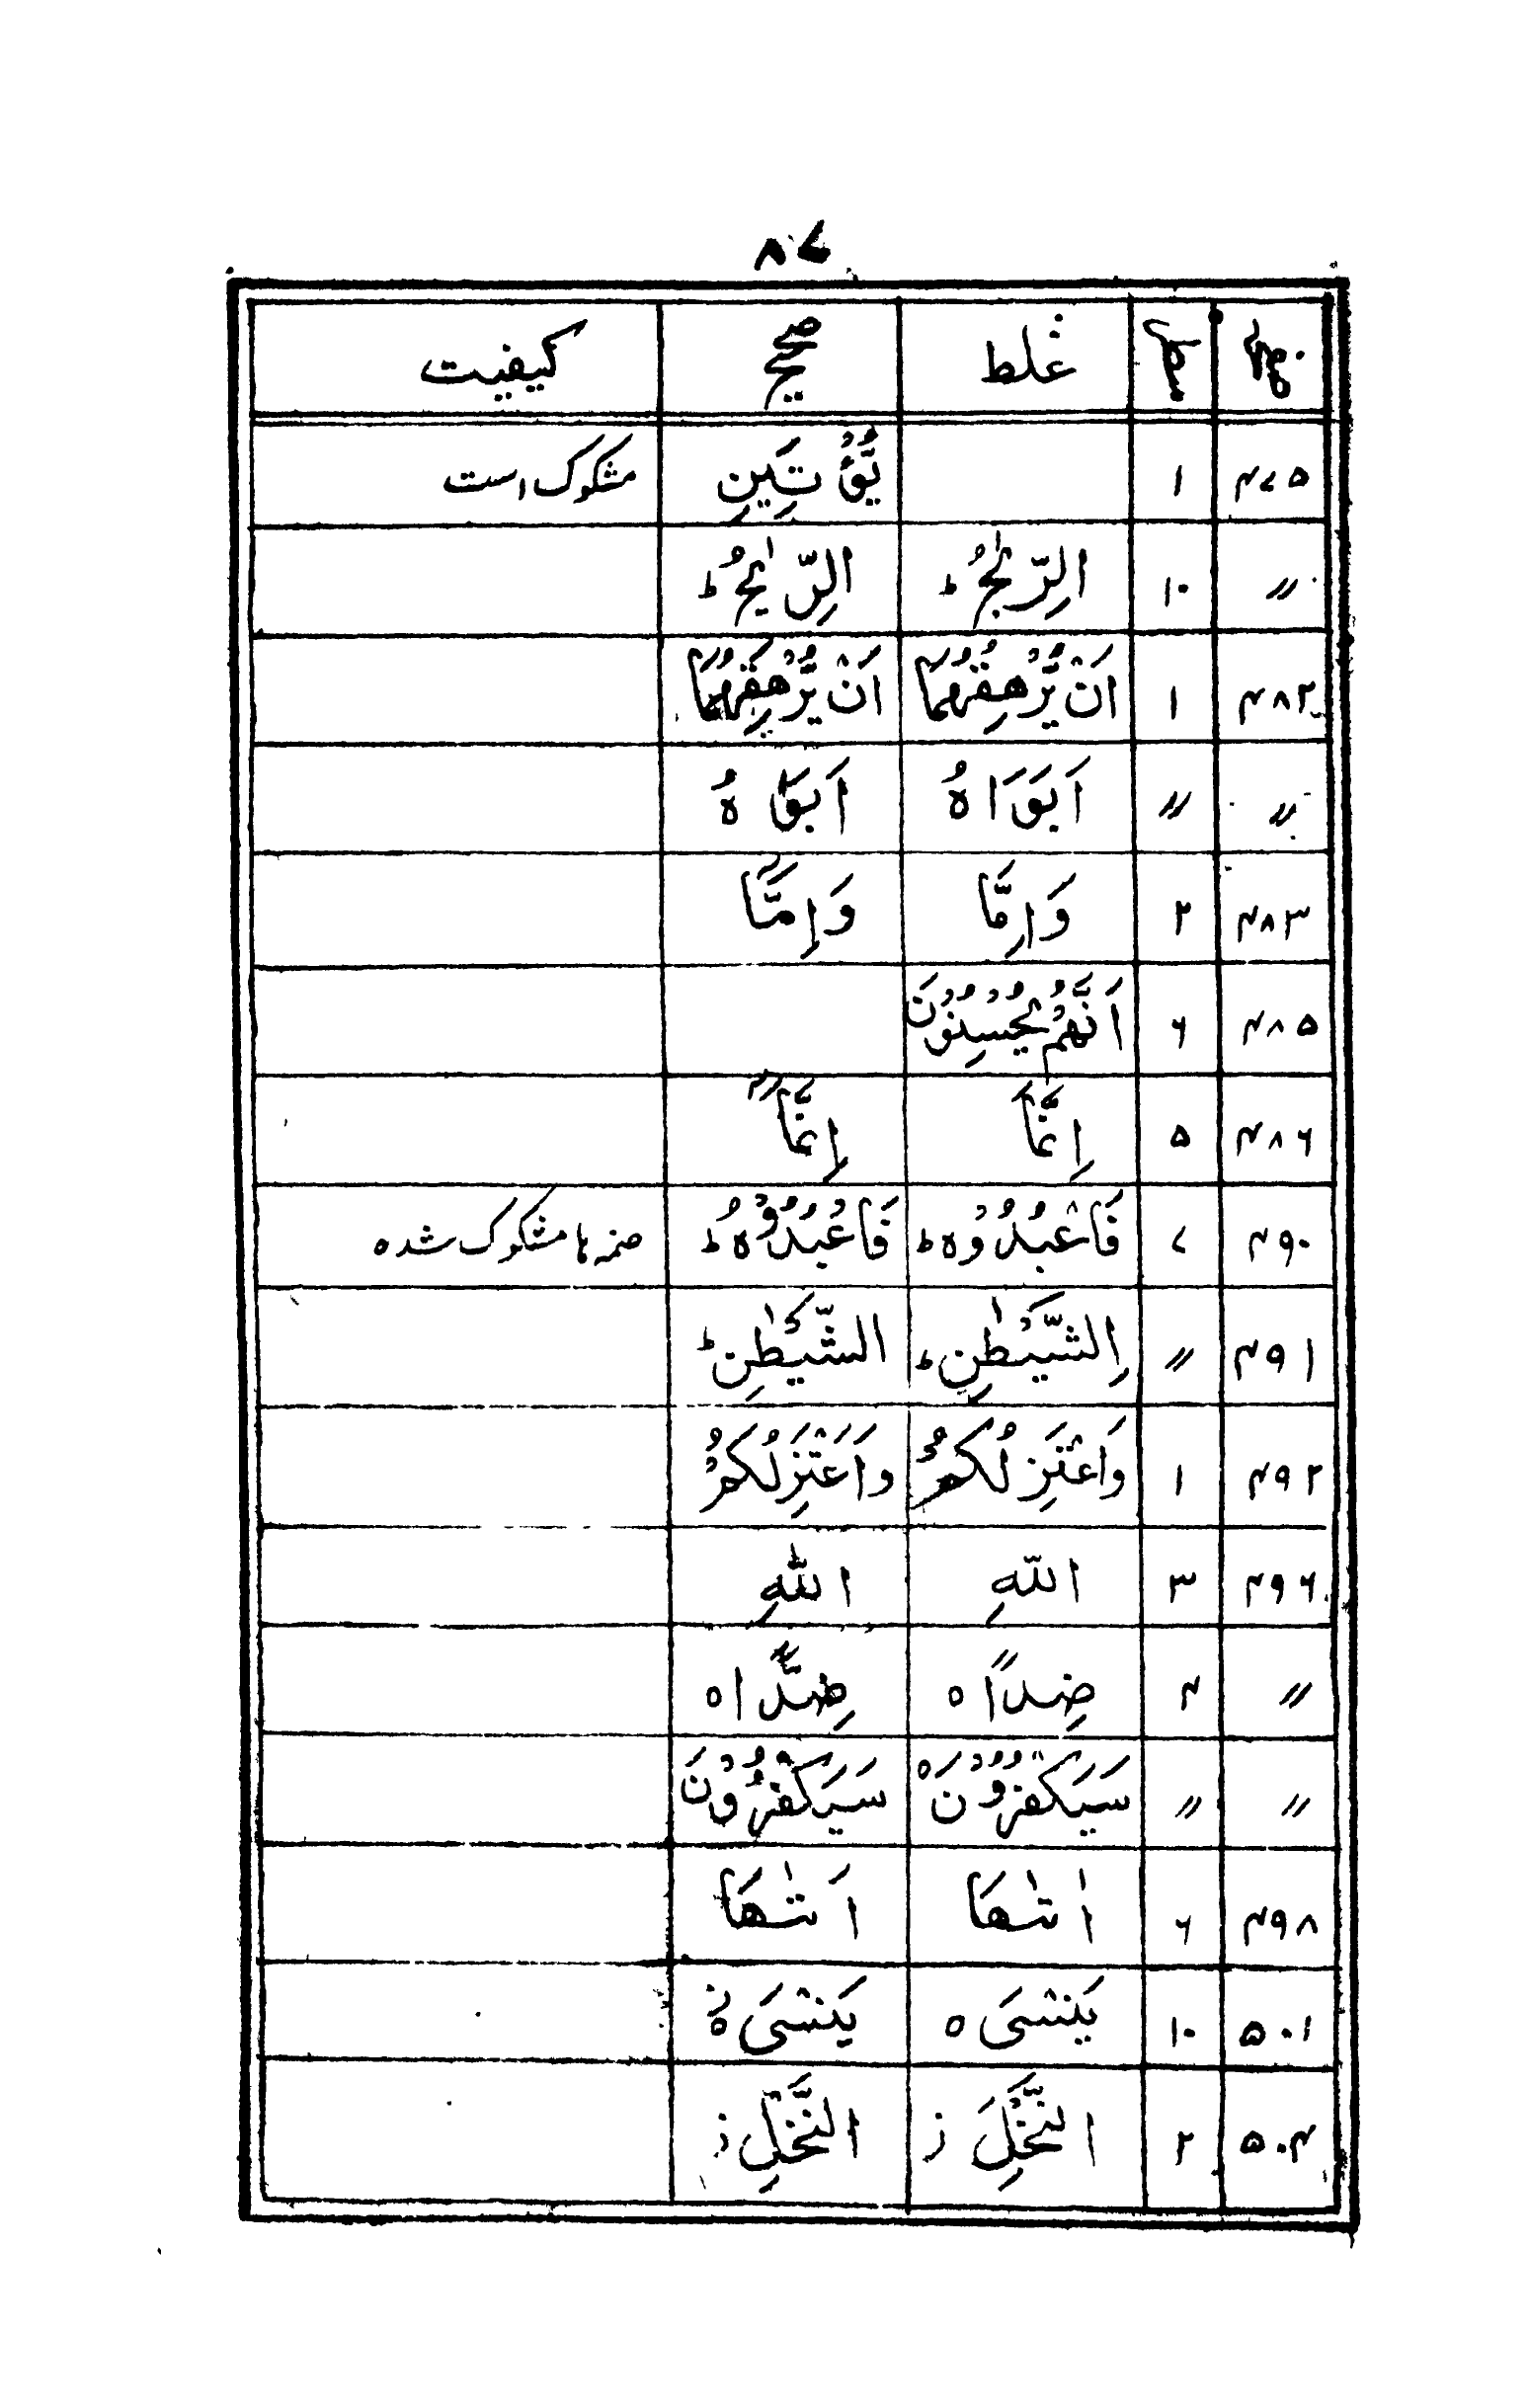 ۸۷
صفحہ سطر غلط صحیح کیفیت
۴۷۵ ۱ یُّؤْتِیَنِ مشکوک است
〃 ۱۰ الرِّیٰحُ ؕ الرِّیٰحُ ؕ
۴۸۲ ۱ اَنْ یُّرْهِقَهُمَا اَنْ یُّرْهِقَهُمَا
〃 〃 اَبَوَاهُ اَبَوٰهُ
۴۸۳ ۲ وَاِمَّا وَاِمَّاۤ
۴۸۵ ۶ اَنَّهُمْ یُحْسِنُوْنَ
۴۸۶ ۵ اِنَّمَا اِنَّمَاۤ
۴۹۰ ۷ فَاعْبُدُوْهُ ؕ فَاعْبُدُوْهُ ؕ ضمہ ہا مشکوک شدہ
۴۹۱ 〃 الشَّیْطٰنِ ؕ الشَّیْطٰنِ ؕ
۴۹۲ ۱ وَاَعْتَزِلُکُمْ وَاَعْتَزِلُکُمْ
۴۹۶ ۳ اللّهِ اللّٰهِ
〃 ۴ ضِدًا ہ ضِدًّا ہ
〃 〃 سَیَکْفُرُوْنَ ہ سَیَکْفُرُوْنَ
۴۹۸ ۶ اٰتٰهَا اَتٰهَا
۵۰۱ ۱۰ یَنْسَی ہ یَنْسَی ہ
۵۰۴ ۲ النَّخْلِ ز النَّخْلِ ز